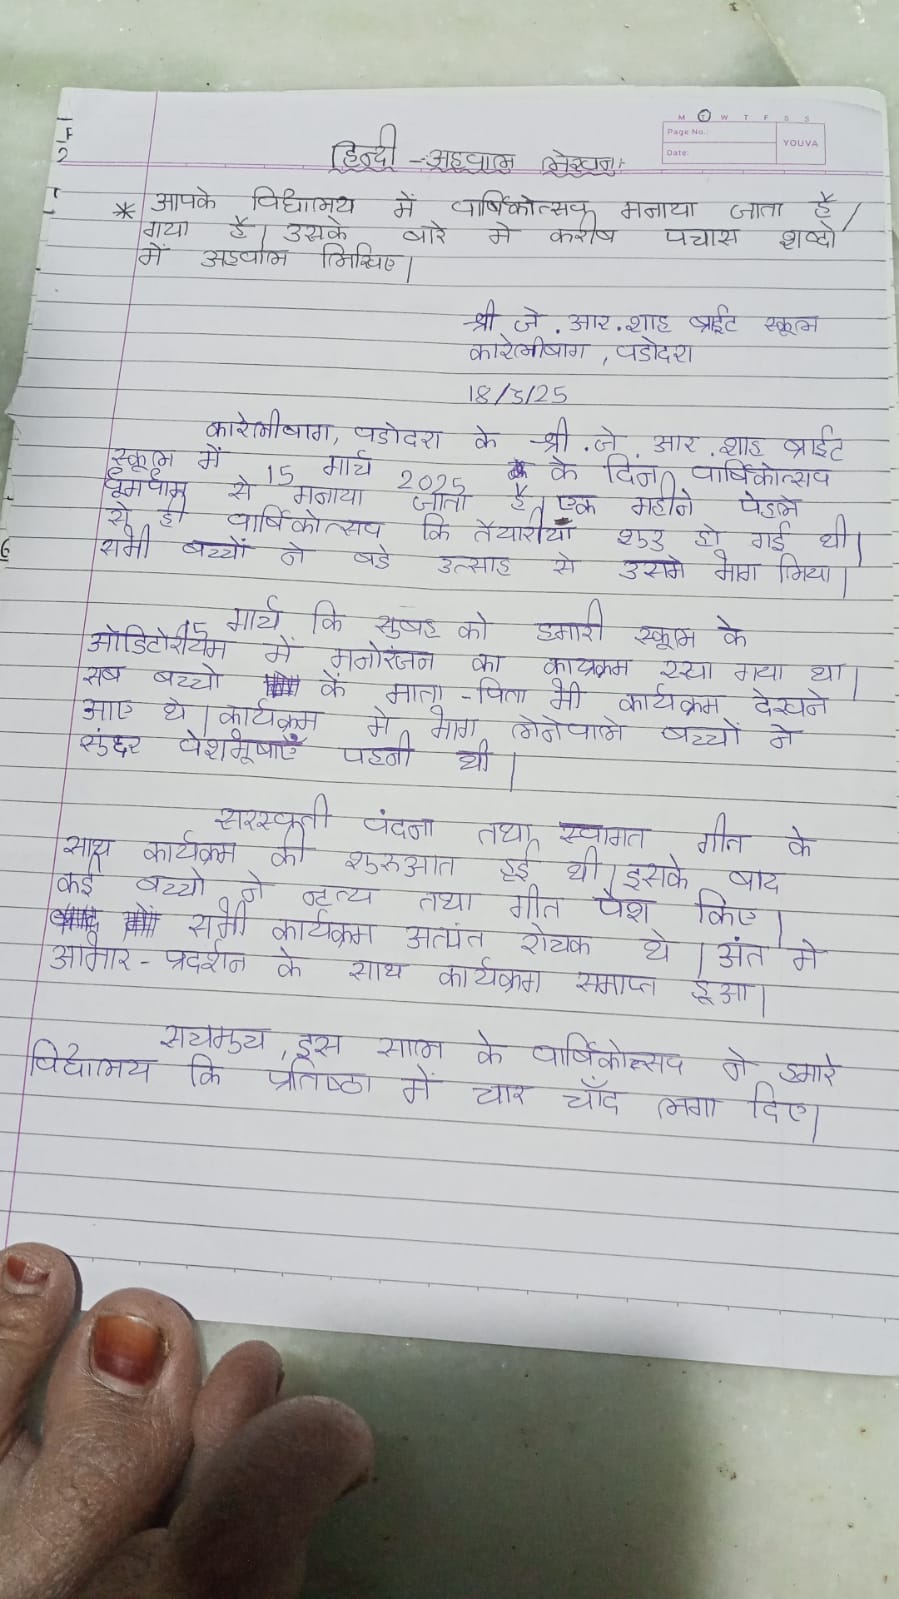 M T W T F S S
Page No.:
Date:
YOUVA
हिन्दी -अहवाल लेखन:
* आपके विद्यालय में वार्षिकोत्सव मनाया जाता है/
गया है। उसके बारे में करीब पचास शब्दो
में अहवाल लिखिए।
श्री जे. आर. शाह ब्राईट स्कूल
कारेलीबाग, वडोदरा
18/3/25
कारेलीबाग, वडोदरा के श्री. जे. आर. शाह ब्राईट
स्कूल में 15 मार्च 2025 के दिन वार्षिकोत्सव
धूमधाम से मनाया जाता है। एक महीने पेहले
से ही वार्षिकोत्सव कि तैयारीयाँ शुरु हो गई थी।
सभी बच्चों ने बडे उत्साह से उसमे भाग लिया।
15 मार्च कि सुबह को हमारी स्कूल के
ओडिटोरीयम में मनोरंजन का कार्यक्रम रखा गया था।
सब बच्चो के माता-पिता भी कार्यक्रम देखने
आए थे। कार्यक्रम मे भाग लेनेवाले बच्चों ने
सुंदर वेशभूषाएँ पहनी थी।
सरस्वती वंदना तथा स्वागत गीत के
साथ कार्यक्रम की शुरुआत हुई थी। इसके बाद
कई बच्चो ने नृत्य तथा गीत पेश किए।
सभी कार्यक्रम अत्यंत रोचक थे। अंत मे
आभार-प्रदर्शन के साथ कार्यक्रम समाप्त हुआ।
सचमुच, इस साल के वार्षिकोत्सव ने हमारे
विद्यालय कि प्रतिष्ठा में चार चाँद लगा दिए।